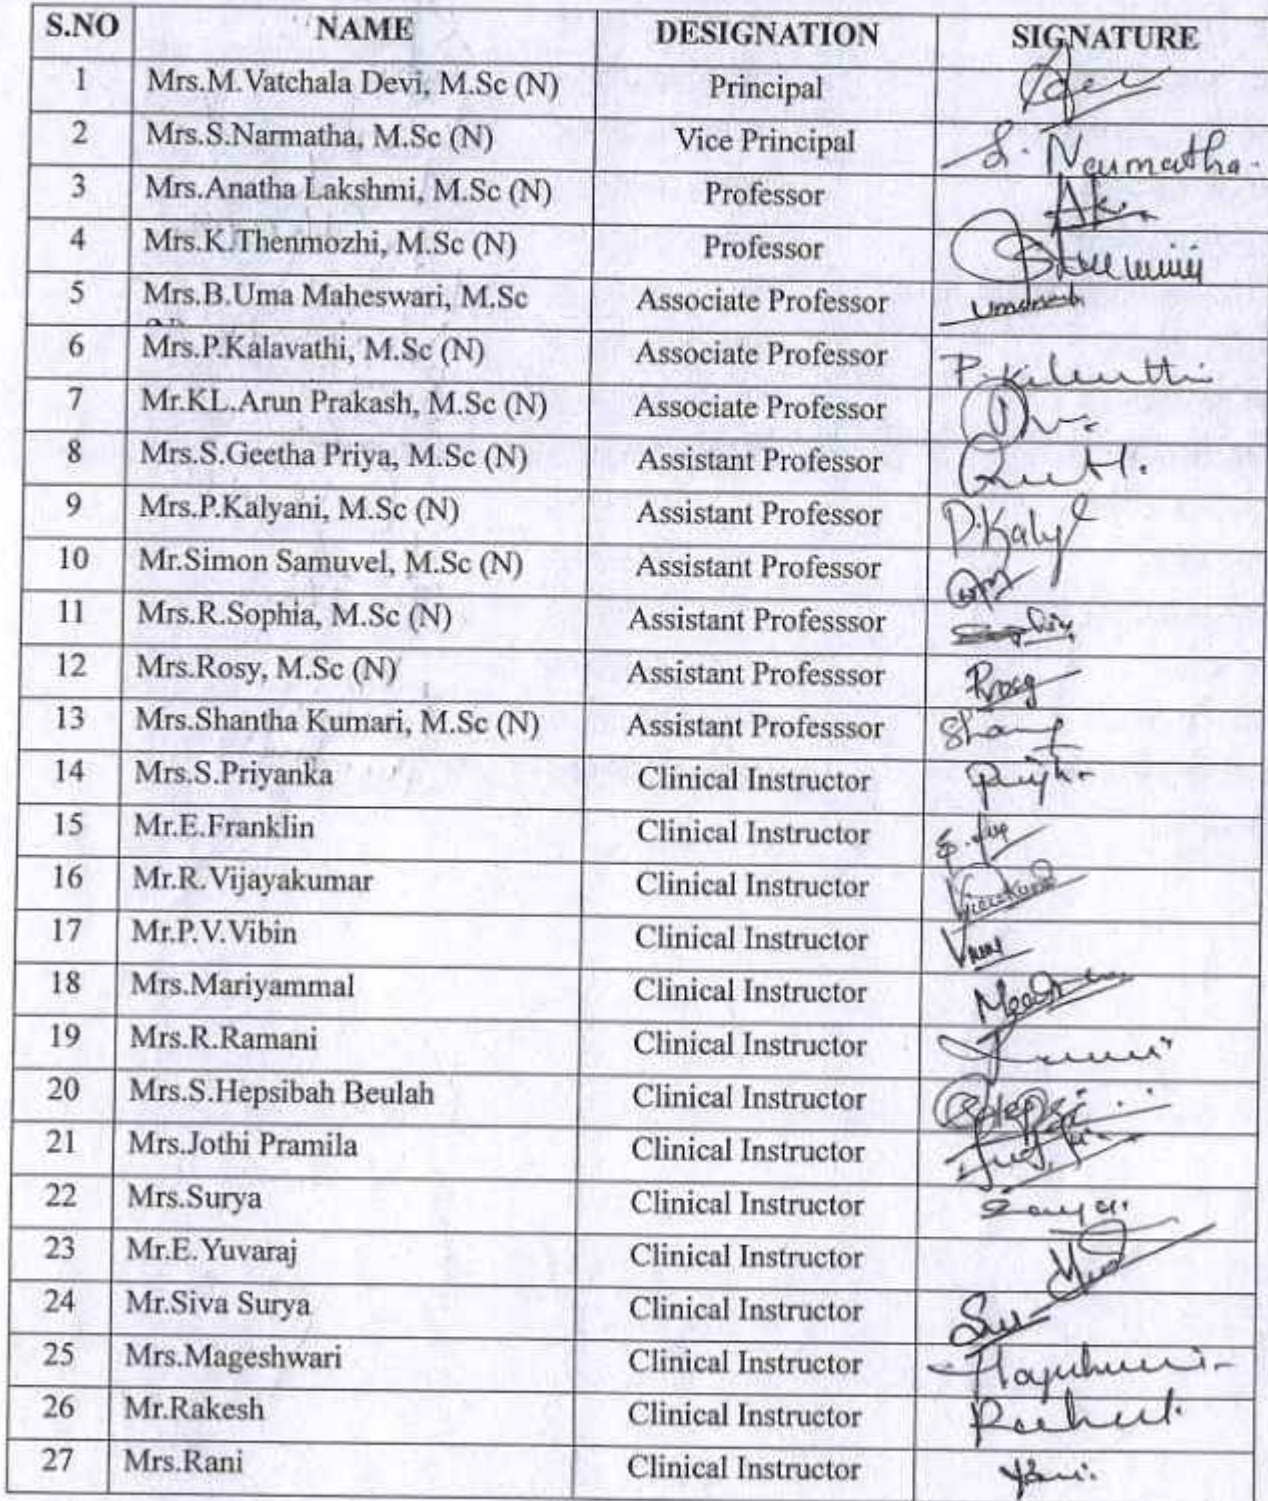 S.NO NAME DESIGNATION SIGNATURE
1 Mrs.M.Vatchala Devi, M.Sc (N) Principal
2 Mrs.S.Narmatha, M.Sc (N) Vice Principal S. Narmatha.
3 Mrs.Anatha Lakshmi, M.Sc (N) Professor
4 Mrs.K.Thenmozhi, M.Sc (N) Professor
5 Mrs.B.Uma Maheswari, M.Sc Associate Professor
6 Mrs.P.Kalavathi, M.Sc (N) Associate Professor
7 Mr.KL.Arun Prakash, M.Sc (N) Associate Professor
8 Mrs.S.Geetha Priya, M.Sc (N) Assistant Professor
9 Mrs.P.Kalyani, M.Sc (N) Assistant Professor
10 Mr.Simon Samuvel, M.Sc (N) Assistant Professor
11 Mrs.R.Sophia, M.Sc (N) Assistant Professsor
12 Mrs.Rosy, M.Sc (N) Assistant Professsor
13 Mrs.Shantha Kumari, M.Sc (N) Assistant Professsor
14 Mrs.S.Priyanka Clinical Instructor
15 Mr.E.Franklin Clinical Instructor
16 Mr.R.Vijayakumar Clinical Instructor
17 Mr.P.V.Vibin Clinical Instructor
18 Mrs.Mariyammal Clinical Instructor
19 Mrs.R.Ramani Clinical Instructor
20 Mrs.S.Hepsibah Beulah Clinical Instructor
21 Mrs.Jothi Pramila Clinical Instructor
22 Mrs.Surya Clinical Instructor
23 Mr.E.Yuvaraj Clinical Instructor
24 Mr.Siva Surya Clinical Instructor
25 Mrs.Mageshwari Clinical Instructor
26 Mr.Rakesh Clinical Instructor
27 Mrs.Rani Clinical Instructor